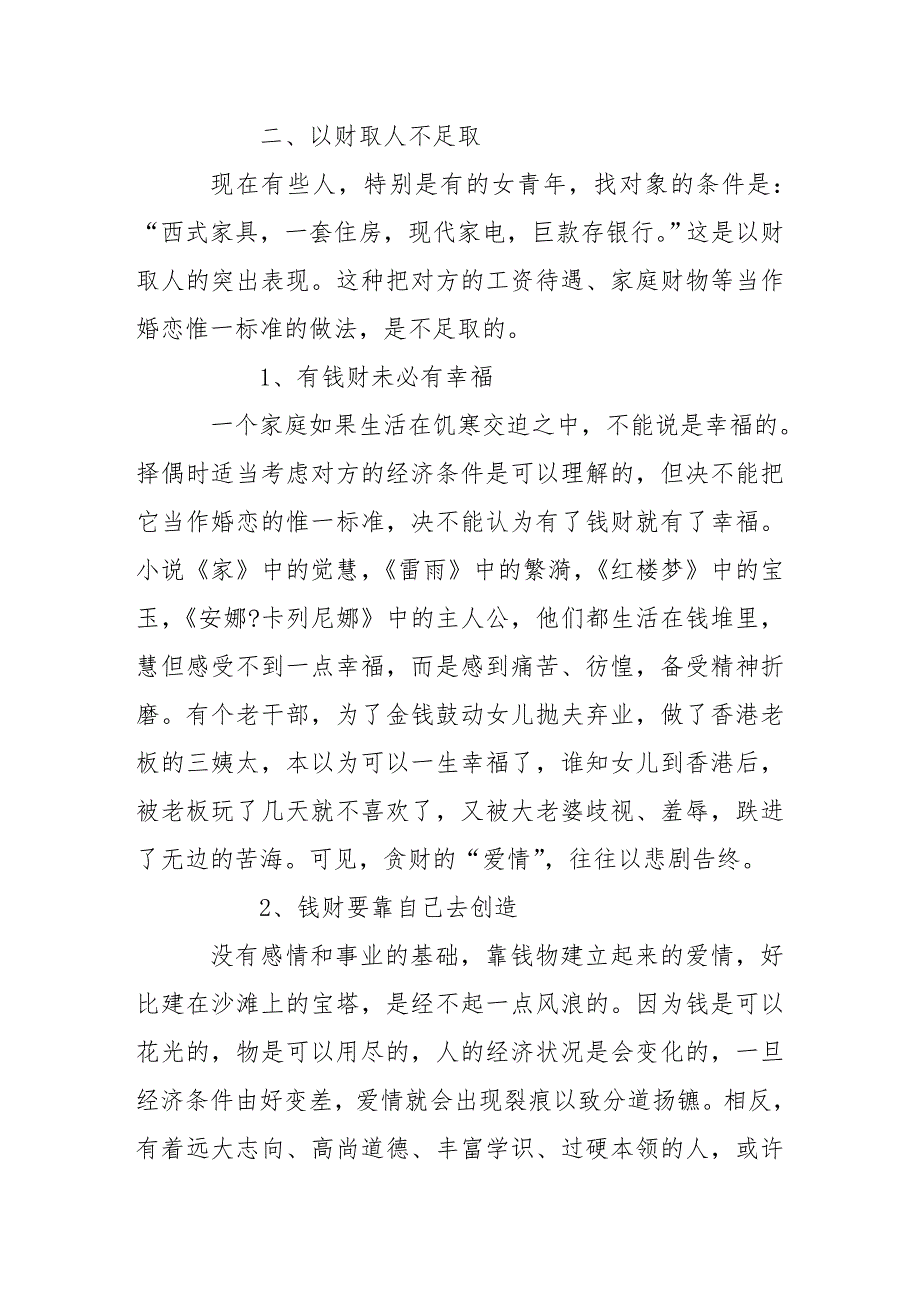 二、以财取人不足取
现在有些人，特别是有的女青年，找对象的条件是：
“西式家具，一套住房，现代家电，巨款存银行。”这是以财
取人的突出表现。这种把对方的工资待遇、家庭财物等当作
婚恋惟一标准的做法，是不足取的。
1、有钱财未必有幸福
一个家庭如果生活在饥寒交迫之中，不能说是幸福的。
择偶时适当考虑对方的经济条件是可以理解的，但决不能把
它当作婚恋的惟一标准，决不能认为有了钱财就有了幸福。
小说《家》中的觉慧，《雷雨》中的繁漪，《红楼梦》中的宝
玉，《安娜?卡列尼娜》中的主人公，他们都生活在钱堆里，
慧但感受不到一点幸福，而是感到痛苦、彷惶，备受精神折
磨。有个老干部，为了金钱鼓动女儿抛夫弃业，做了香港老
板的三姨太，本以为可以一生幸福了，谁知女儿到香港后，
被老板玩了几天就不喜欢了，又被大老婆歧视、羞辱，跌进
了无边的苦海。可见，贪财的“爱情”，往往以悲剧告终。
2、钱财要靠自己去创造
没有感情和事业的基础，靠钱物建立起来的爱情，好
比建在沙滩上的宝塔，是经不起一点风浪的。因为钱是可以
花光的，物是可以用尽的，人的经济状况是会变化的，一旦
经济条件由好变差，爱情就会出现裂痕以致分道扬镳。相反，
有着远大志向、高尚道德、丰富学识、过硬本领的人，或许